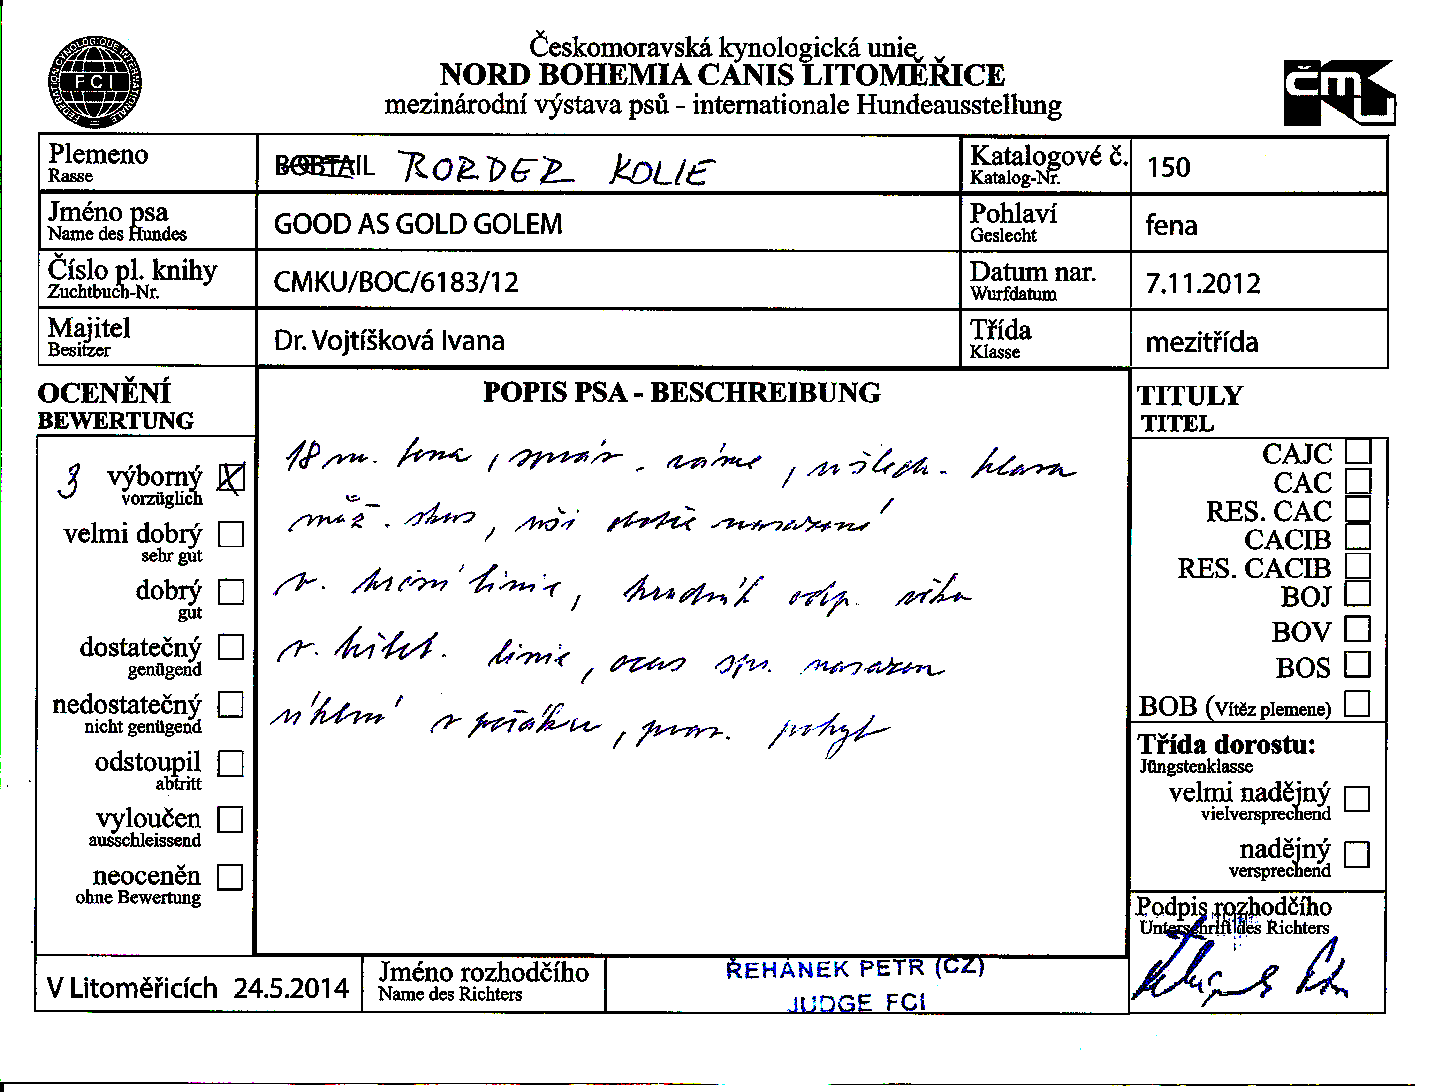 Českomoravská kynologická unie
NORD BOHEMIA CANIS LITOMĚŘICE
mezinárodní výstava psů - internationale Hundeausstellung
FCI
ČMKU
Plemeno
Rasse
BOBTAIL BORDER KOLIE
Katalogové č.
Katalog-Nr.
150
Jméno psa
Name des Hundes
GOOD AS GOLD GOLEM
Pohlaví
Geslecht
fena
Číslo pl. knihy
Zuchtbuch-Nr.
CMKU/BOC/6183/12
Datum nar.
Wurfdatum
7.11.2012
Majitel
Besitzer
Dr. Vojtíšková Ivana
Třída
Klasse
mezitřída
OCENĚNÍ
BEWERTUNG
3 výborný
vorzüglich
velmi dobrý
sehr gut
dobrý
gut
dostatečný
genügend
nedostatečný
nicht genügend
odstoupil
abtritt
vyloučen
ausschleissend
neoceněn
ohne Bewertung
POPIS PSA - BESCHREIBUNG
18 m. fena, správ. , ušlech. hlava
nůž. skus, uši dobře nasazené
v. krční linie, hrudník odp. věku
v. hřbet. linie, ocas spr. nasazen
úhlení v pořádku, prav. pohyb
TITULY
TITEL
CAJC
CAC
RES. CAC
CACIB
RES. CACIB
BOJ
BOV
BOS
BOB (Vítěz plemene)
Třída dorostu:
Jüngstenklasse
velmi nadějný
vielversprechend
nadějný
versprechend
Podpis rozhodčího
Unterschrift des Richters
V Litoměřicích 24.5.2014
Jméno rozhodčího
Name des Richters
ŘEHÁNEK PETR (CZ)
JUDGE FCI